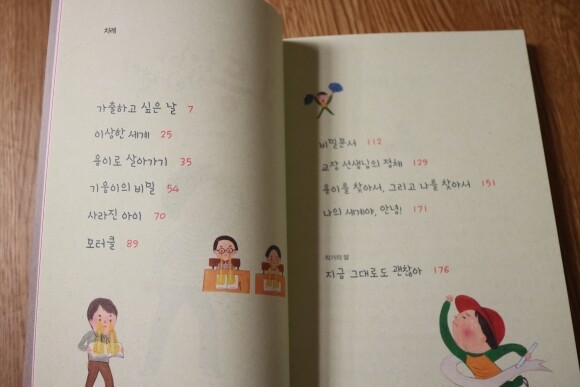 차례
가출하고 싶은 날 7
이상한 세계 25
용이로 살아가기 35
기웅이의 비밀 54
사라진 아이 70
모터쿨 89
비밀문서 112
교장 선생님의 정체 129
용이를 찾아서, 그리고 나를 찾아서 151
나의 세계야, 안녕! 171
작가의 말
지금 그대로도 괜찮아 176